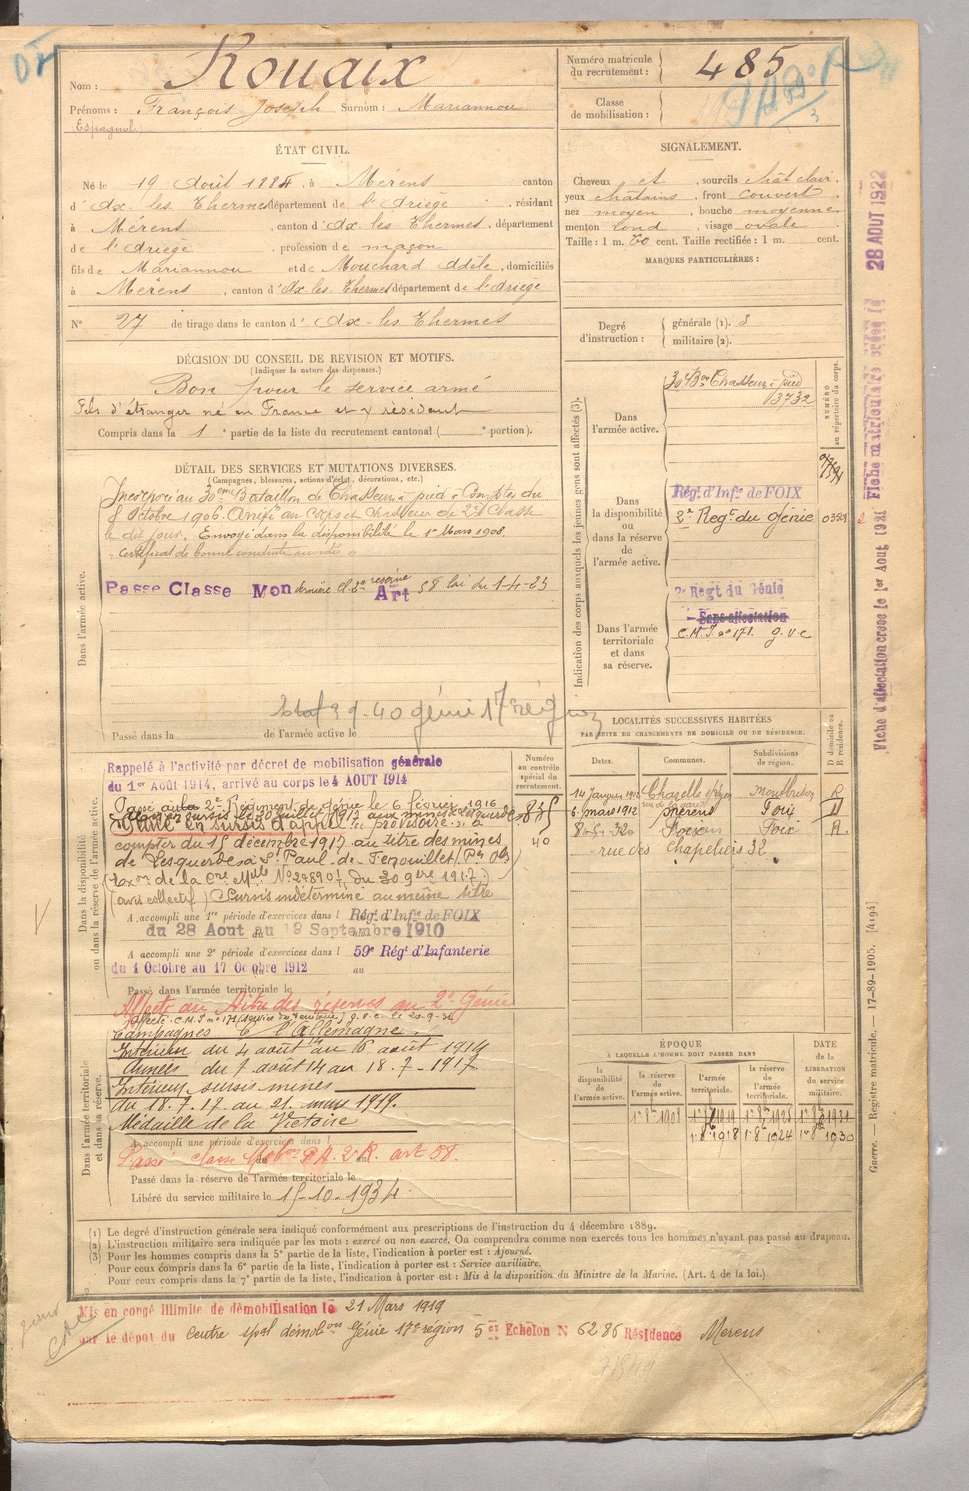 Nom : Rouaix
Prénoms : François Joseph Surnom : Mariannou
(Espagnol)
Numéro matricule du recrutement : 485
Classe de mobilisation :
ÉTAT CIVIL.
Né le 19 Août 1884, à Mérens canton
d'Ax les Thermes département de l'Ariège, résidant
à Mérens, canton d'Ax les Thermes, département
de l'Ariège, profession de maçon
fils de Mariannou et de Mouchard Adèle, domiciliés
à Mérens, canton d'Ax les Thermes département de l'Ariège
N° 27 de tirage dans le canton d'Ax-les Thermes
SIGNALEMENT.
Cheveux et, sourcils chât clair.
yeux châtains, front couvert
nez moyen, bouche moyenne
menton rond, visage ovale
Taille : 1 m. 60 cent. Taille rectifiée : 1 m. cent.
MARQUES PARTICULIÈRES :
Degré d'instruction : générale (1). 3
militaire (2).
DÉCISION DU CONSEIL DE REVISION ET MOTIFS.
(Indiquer la nature des dispenses.)
Bon pour le service armé
Fils d'étranger né en France et y résidant
Compris dans la 1e partie de la liste du recrutement cantonal ( e portion).
DÉTAIL DES SERVICES ET MUTATIONS DIVERSES.
(Campagnes, blessures, actions d'éclat, décorations, etc.)
Dans l'armée active.
Incorporé au 30ème Bataillon de Chasseurs à pied à Compter du
8 Octobre 1906. Arrivé au corps et Chasseur de 2e Classe
le dit jour. Envoyé dans la disponibilité le 1er Mars 1908.
Certificat de bonne conduite accordé
Passe Classe Mon dernière el. 2e reserve Art 58 loi du 1-4-23
39-40 génie 17e région
Passé dans la de l'armée active le
Indication des corps auxquels les jeunes gens sont affectés (3).
NUMÉRO au répertoire du corps.
Dans l'armée active.
30e Bon Chasseurs à pied
3732
Dans la disponibilité ou dans la réserve de l'armée active.
Régt d'Infie de FOIX
2e Regt du Génie
Dans l'armée territoriale et dans sa réserve.
2e Régt du Génie
Sans affectation
C.M.I n° 171. g.v.c
Fiche d'affectation creee le 1er Aout 1921 Fiche matriculaire créée le 28 AOUT 1922
LOCALITÉS SUCCESSIVES HABITÉES
PAR SUITE DE CHANGEMENTS DE DOMICILE OU DE RÉSIDENCE.
Dates. Communes. Subdivisions de région. D domicile ou R résidence.
14 Janvier 1912 Montbrison R
6 mars 1912 Mérens Foix D
Foix R.
rue des Chapeliers 32
Dans la disponibilité ou dans la réserve de l'armée active.
Numéro au contrôle spécial du recrutement.
Rappelé à l'activité par décret de mobilisation générale
du 1er Août 1914, arrivé au corps le 4 AOUT 1914
Passé au 2e Régiment de génie le 6 février 1916
en sursis d'appel
compter du 15 décembre 1917 au titre des mines
de Lesquerde à St Paul-de-Fenouillet (Pes Oles)
(avis collectif) Sursis indéterminé au même titre
A accompli une 1re période d'exercices dans l Régt d'Infie de FOIX
du 28 Aout au 19 Septembre 1910
A accompli une 2e période d'exercices dans l 59e Régt d'Infanterie
du 1 Octobre au 17 Octobre 1912 au
Passé dans l'armée territoriale le
Affecté au titre des réserves au 2e Génie
Dans l'armée territoriale et dans sa réserve.
Campagnes C l'Allemagne.
Intérieur du 4 août 14 au 6 août 1914
Armées du 7 août 14 au 18.7.1917
Intérieur sursis mines
du 18.7.17 au 21. mars 1919.
Médaille de la Victoire
A accompli une période d'exercices dans l
Passé classe Mobon D.A. 2e R. art 58.
Passé dans la réserve de l'armée territoriale le
Libéré du service militaire le 15-10-1934.
ÉPOQUE
À LAQUELLE L'HOMME DOIT PASSER DANS
DATE de la LIBÉRATION du service militaire.
la disponibilité de l'armée active. la réserve de l'armée active. l'armée territoriale. la réserve de l'armée territoriale.
1er 8bre 1908
1er 8bre 1918 1er 8bre 1924 1er 8bre 1930
(1) Le degré d'instruction générale sera indiqué conformément aux prescriptions de l'instruction du 4 décembre 1889.
(2) L'instruction militaire sera indiquée par les mots : exercé ou non exercé. On comprendra comme non exercés tous les hommes n'ayant pas passé au drapeau.
(3) Pour les hommes compris dans la 5e partie de la liste, l'indication à porter est : Ajourné.
Pour ceux compris dans la 6e partie de la liste, l'indication à porter est : Service auxiliaire.
Pour ceux compris dans la 7e partie de la liste, l'indication à porter est : Mis à la disposition du Ministre de la Marine. (Art. 4 de la loi.)
Guerre. — Registre matricule. — 17-89-1905. [4194]
Mis en congé illimité de démobilisation le 21 Mars 1919
par le dépot du Centre spal démobon Génie 17e région 5e Echelon N 6286 Résidence Merens